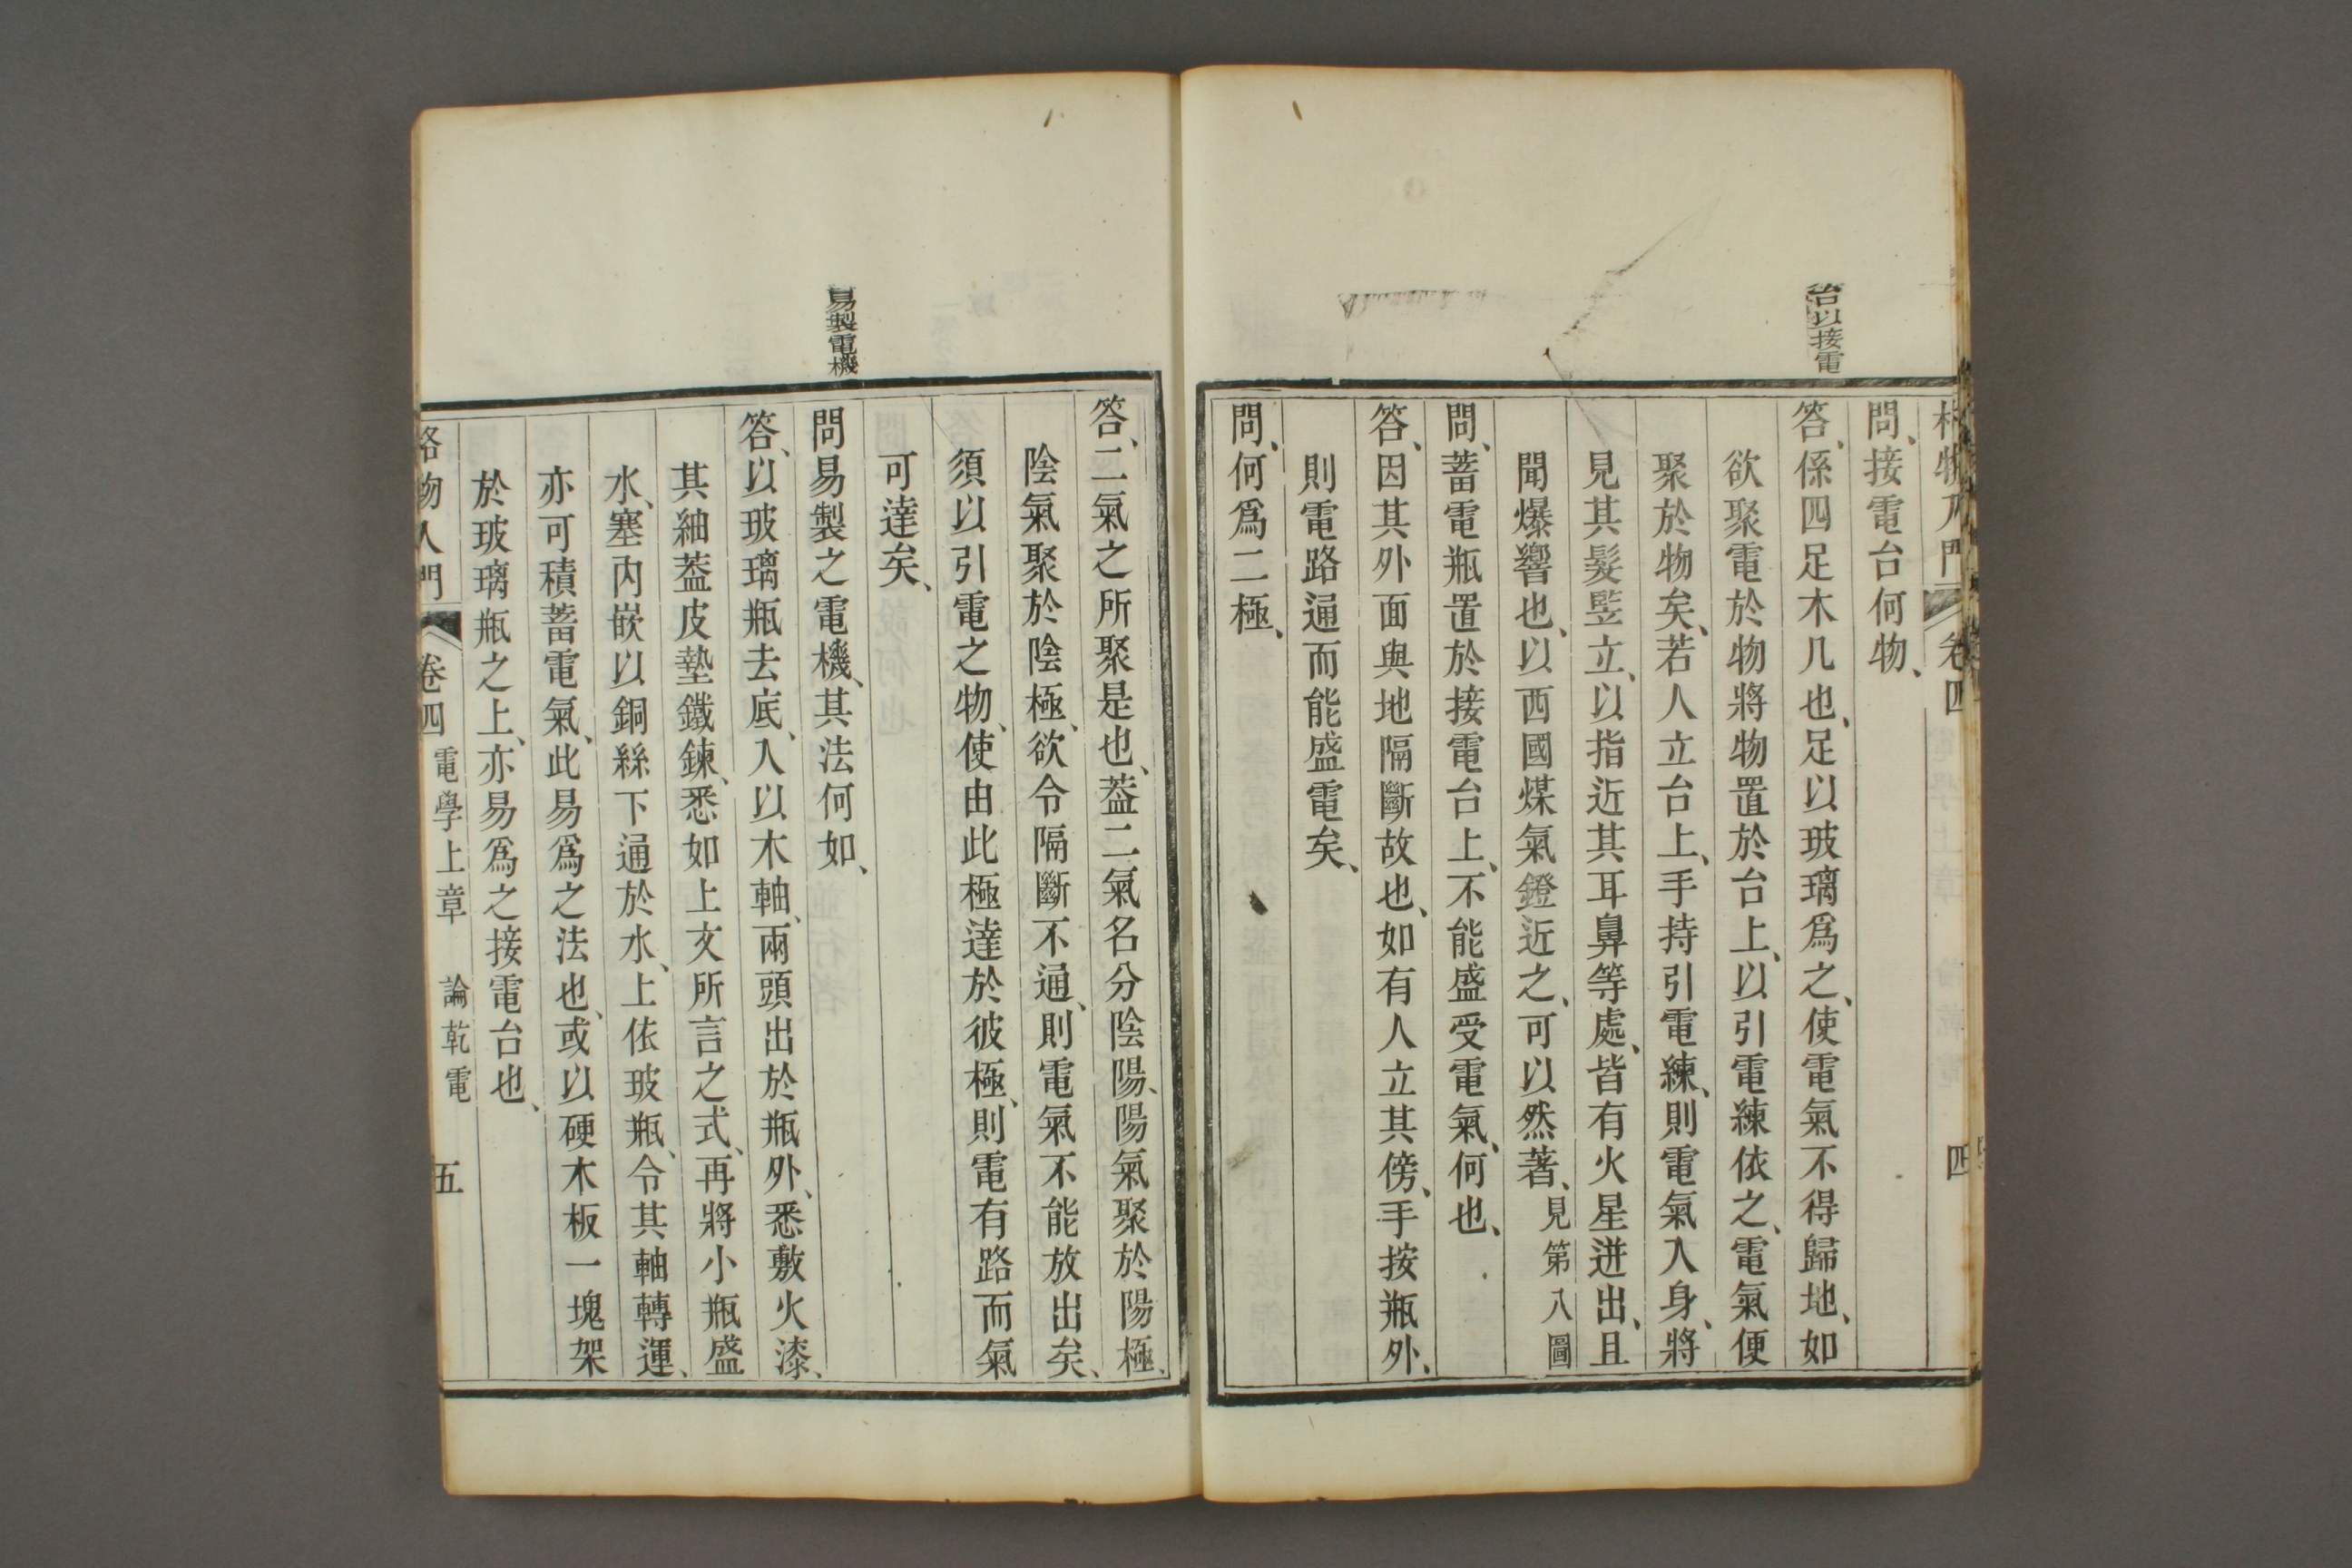 台以接電
格物入門 卷四 四
問、接電台何物、
答、係四足木几也、足以玻璃爲之、使電氣不得歸地、如
欲聚電於物將物置於台上、以引電練依之、電氣便
聚於物矣、若人立台上、手持引電練、則電氣入身、將
見其髮竪立、以指近其耳鼻等處、皆有火星迸出、且
聞爆響也、以西國煤氣鐙近之、可以然著、見第八圖
問、蓄電瓶置於接電台上、不能盛受電氣、何也、
答、因其外面與地隔斷故也、如有人立其傍、手按瓶外、
則電路通而能盛電矣、
問、何爲二極、
答、二氣之所聚是也、葢二氣名分陰陽、陽氣聚於陽極、
陰氣聚於陰極、欲令隔斷不通、則電氣不能放出矣、
須以引電之物、使由此極達於彼極、則電有路而氣
可達矣、
易製電機
問易製之電機、其法何如、
答、以玻璃瓶去底、入以木軸、兩頭出於瓶外、悉敷火漆、
其紬葢皮墊鐵鍊、悉如上文所言之式、再將小瓶盛
水、塞內嵌以銅絲下通於水、上依玻瓶、令其軸轉運、
亦可積蓄電氣、此易爲之法也、或以硬木板一塊架
於玻璃瓶之上、亦易爲之接電台也、
格物入門 卷四 電學上章 論乾電 五